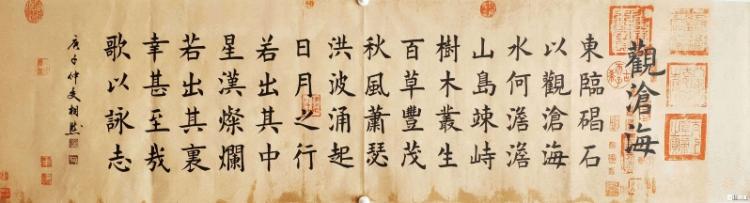 觀滄海
東臨碣石
以觀滄海
水何澹澹
山島竦峙
樹木叢生
百草豐茂
秋風蕭瑟
洪波涌起
日月之行
若出其中
星漢燦爛
若出其裏
幸甚至哉
歌以詠志
庚子仲夏樹然